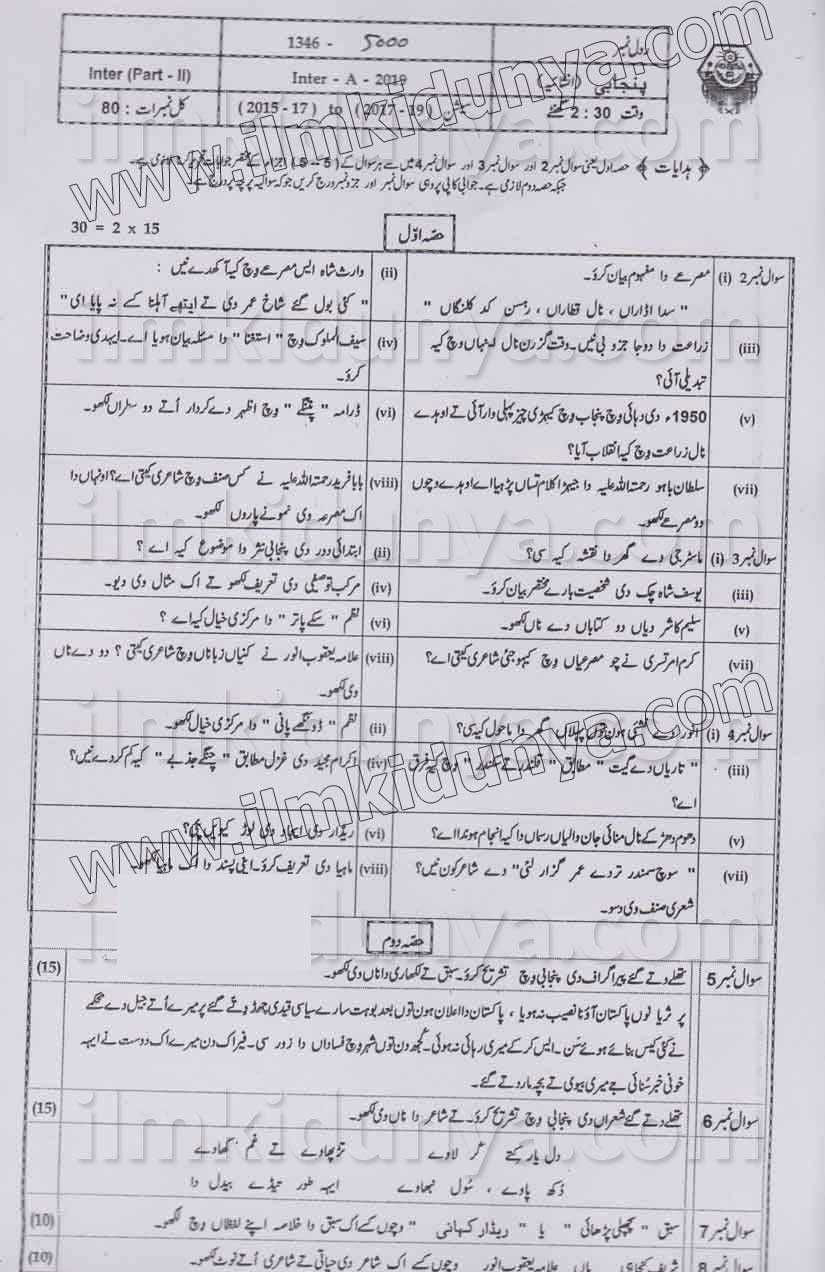 رول نمبر 1346 - 5000
پنجابی (انشائیہ) Inter - A - 2019 Inter (Part - II)
وقت 2 : 30 گھنٹے سیشن (2015 - 17) to (2017 - 19) کل نمبرات : 80
﴿ ہدایات ﴾ حصہ اول یعنی سوال نمبر 2 اور سوال نمبر 3 اور سوال نمبر 4 میں سے ہر سوال کے (5 - 5) اجزاء کے مختصر جوابات تحریر کرنا لازمی ہے۔
جبکہ حصہ دوم لازمی ہے۔ جوابی کاپی پر وہی سوال نمبر اور جزو نمبر درج کریں جو کہ سوالیہ پرچہ پر درج ہے۔
حصہ اوّل 30 = 2 x 15
سوال نمبر 2 (i) مصرعے دا مفہوم بیان کرؤ۔
" سدا اڈاراں ، نال قطاراں ، رہسن کد کلنگاں "
(ii) وارث شاہ ایس مصرعے وچ کیہ آکھدے نیں :
" کئی بول گئے شاخ عمر دی تے ایتھے آہلنا کسے نہ پایا ای "
(iii) زراعت دا دوجا جزو بی نیں۔ وقت گزرن نال اینہاں وچ کیہ
تبدیلی آئی؟
(iv) سیف الملوک وچ " استغنا " دا مسئلہ بیان ہویا اے۔ ایہدی وضاحت
کرؤ۔
(v) 1950ء دی دہائی وچ پنجاب وچ کیہڑی چیز پہلی وار آئی تے اوہدے
نال زراعت وچ کیہ انقلاب آیا؟
(vi) ڈرامہ " پتنگے " وچ اظہر دے کردار اُتے دو سطراں لکھو۔
(vii) سلطان باہو رحمتہ اللہ علیہ دا جیہڑا کلام تساں پڑھیا اے اوہدے وچوں
دو مصرعے لکھو۔
(viii) بابا فرید رحمتہ اللہ علیہ نے کس صنف وچ شاعری کیتی اے؟ اونہاں دا
اک مصرعہ وی نمونے پاروں لکھو۔
سوال نمبر 3 (i) ماسٹر جی دے گھر دا نقشہ کیہ سی؟
(ii) ابتدائی دور دی پنجابی نثر دا موضوع کیہ اے ؟
(iii) یوسف شاہ چک دی شخصیت بارے مختصر بیان کرؤ۔
(iv) مرکب توصیفی دی تعریف لکھو تے اک مثال وی دیو۔
(v) سلیم کاشر دیاں دو کتاباں دے ناں لکھو۔
(vi) نظم " سکے پاتر " دا مرکزی خیال کیہ اے ؟
(vii) کرم امرتسری نے چو مصرعیاں وچ کیہو جئی شاعری کیتی اے؟
(viii) علامہ یعقوب انور نے کنیاں زباناں وچ شاعری کیتی ؟ دو دے ناں
وی لکھو۔
سوال نمبر 4 (i) انور دے نشئی ہون توں پہلاں گھر دا ماحول کیہ سی؟
(ii) نظم " ڈونگھے پانی " دا مرکزی خیال لکھو۔
(iii) " تاریاں دے گیت " مطابق " قلندر تے سکندر " وچ کیہ فرق
اے؟
(iv) اکرام مجید دی غزل مطابق " چنگے جذبے " کیہ کم کردے نیں؟
(v) دھوم دھڑکے نال منائی جان والیاں رسماں دا کیہ انجام ہوندا اے؟
(vi) ریڈار دی ایجاد دی لوڑ کیوں پئی؟
(vii) " سوچ سمندر تردے عمر گزار لئی " دے شاعر کون نیں؟
شعری صنف وی دسو۔
(viii) ماہیا دی تعریف کرؤ۔ اپنی پسند دا اک ماہیا لکھو۔
حصہ دوم
سوال نمبر 5 تھلے دتے گئے پیراگراف دی پنجابی وچ تشریح کرؤ۔ سبق تے لکھاری دا ناں وی لکھو۔ (15)
پر ثریا نوں پاکستان آؤنا نصیب نہ ہویا ، پاکستان دا اعلان ہون توں بعد بوہت سارے سیاسی قیدی چھڈ دتے گئے پر میرے اُتے جیل دے محکمے
نے کئی کیس بنائے ہوئے سَن۔ ایس کر کے میری رہائی نہ ہوئی۔ کجھ دن توں شہر وچ فساداں دا زور سی۔ فیر اک دن میرے اک دوست نے ایہہ
خونی خبر سُنائی جے میری بیوی تے بچہ مارے گئے۔
سوال نمبر 6 تھلے دتے گئے شعراں دی پنجابی وچ تشریح کرؤ۔ تے شاعر دا ناں وی لکھو۔ (15)
دل یار کیتے کُر لاوے تڑپھاوے تے غم کھاوے
دُکھ پاوے ، سُول نبھاوے ایہہ طور تیڈے بیدل دا
سوال نمبر 7 سبق " پچھلی پڑھائی " یا " ریڈار کہانی " وچوں کسے اک سبق دا خلاصہ اپنے لفظاں وچ لکھو۔ (10)
سوال نمبر 8 شریف کنجاہی یاں علامہ یعقوب انور وچوں کسے اک شاعر دی حیاتی تے شاعری اُتے نوٹ لکھو۔ (10)
www.ilmkidunya.com
www.ilmkidunya.com
ilmkidunya.com
ilmkidunya.com
ilmkidunya.com
ilmkidunya.com
ilmkidunya.com
ilmkidunya.com